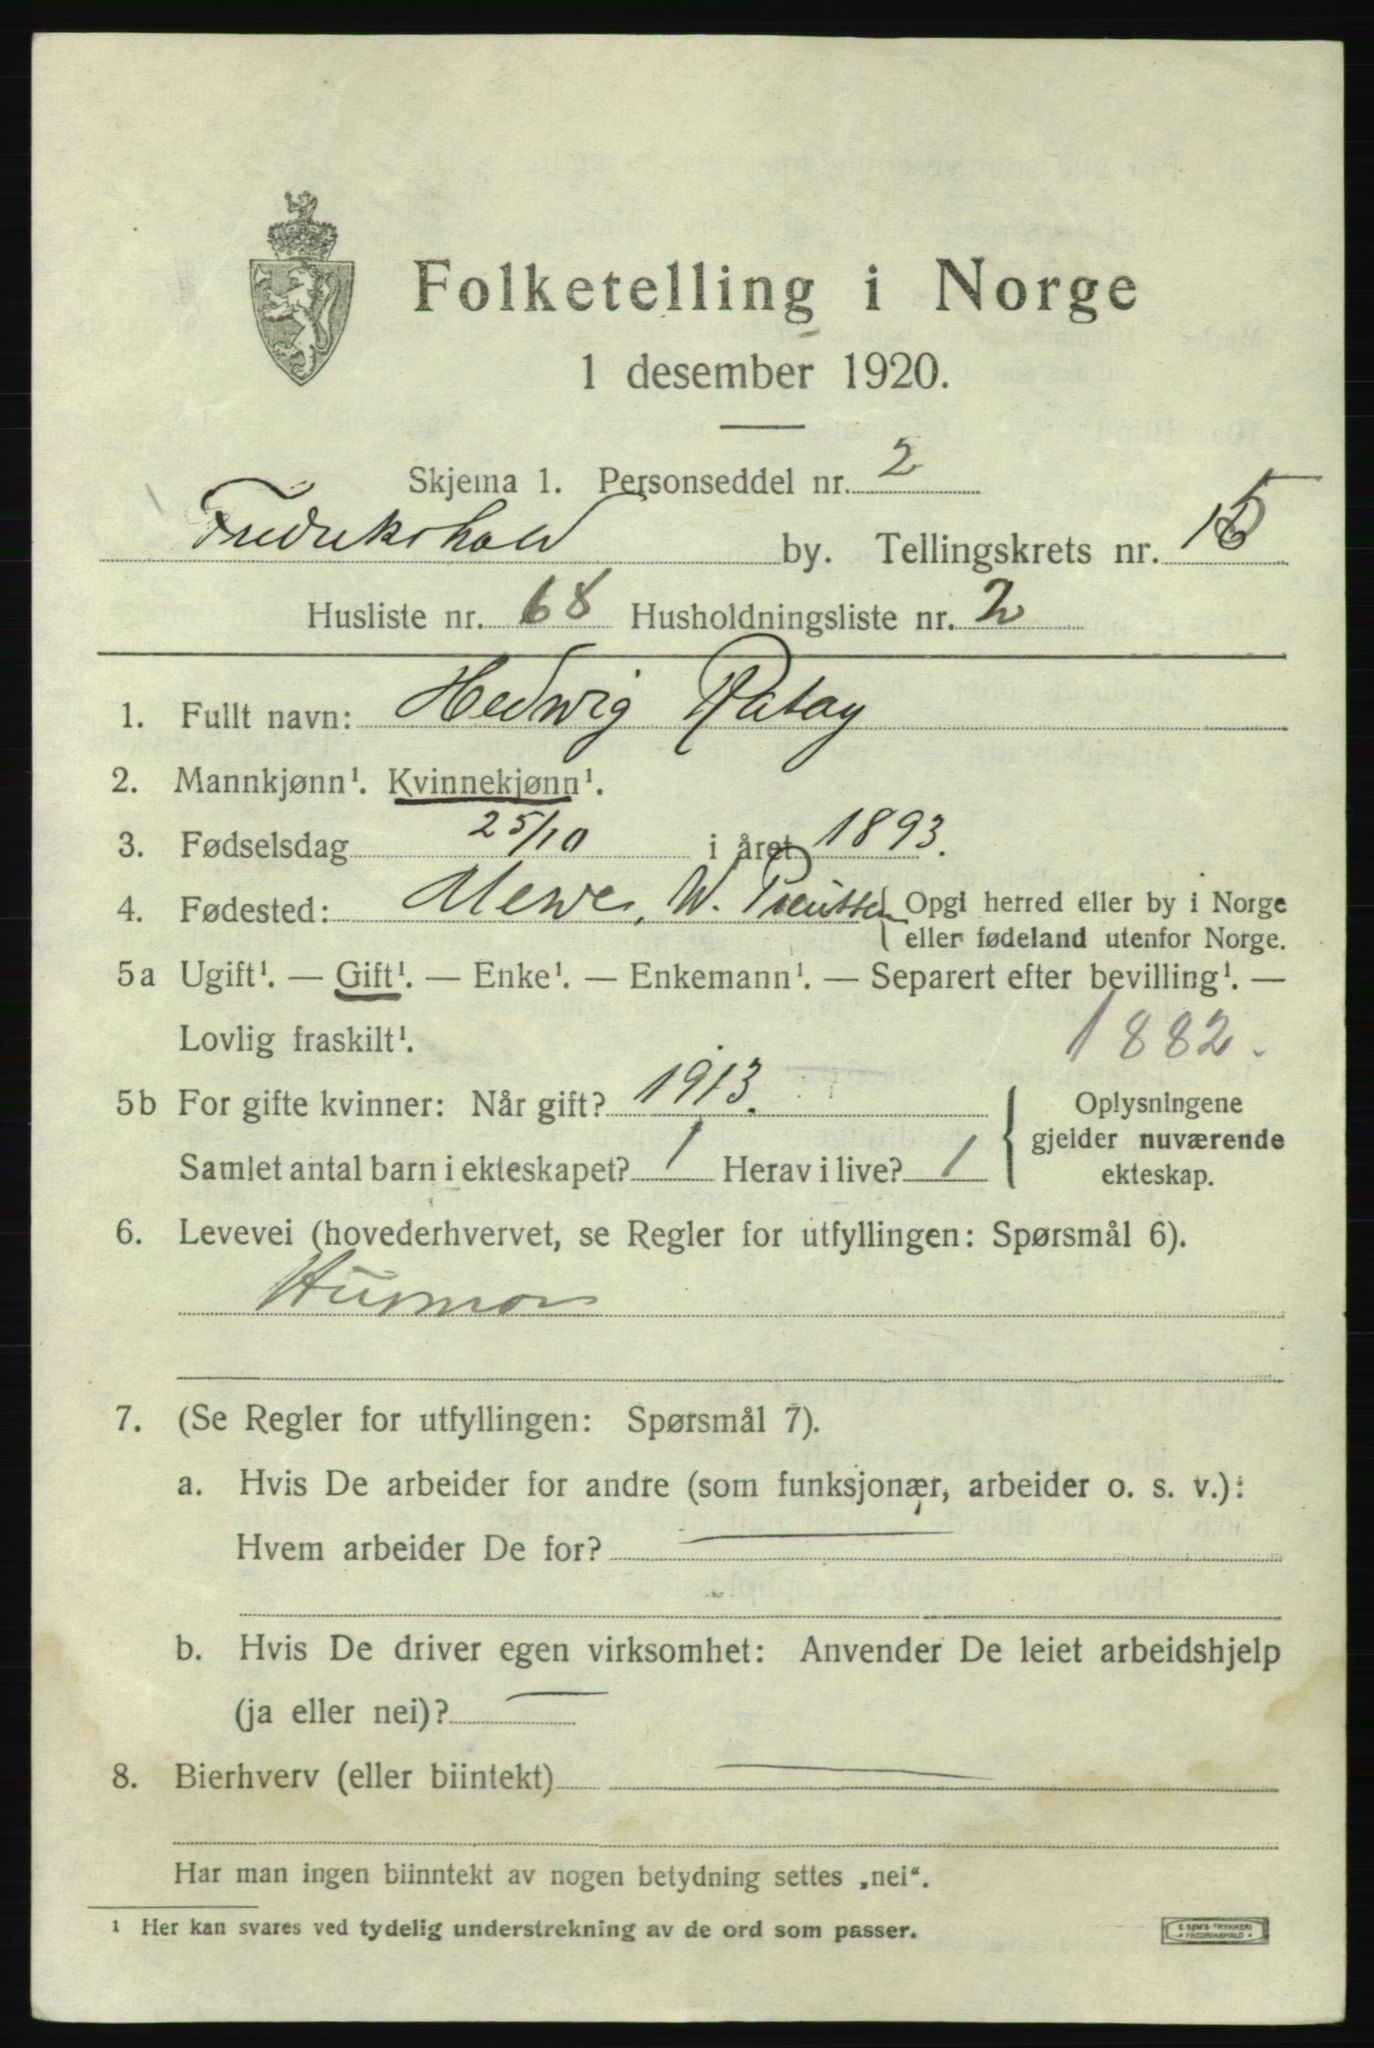 Folketelling i Norge
1 desember 1920.
Skjema 1. Personseddel nr. 2
Fredrikshald by. Tellingskrets nr. 15
Husliste nr. 68 Husholdningsliste nr. 2
1. Fullt navn: Hedwig Ratay
2. Mannkjønn¹. Kvinnekjønn¹.
3. Fødselsdag 25/10 i året 1893.
4. Fødested: Mewe, W. Preussen { Opgi herred eller by i Norge
eller fødeland utenfor Norge.
5a Ugift¹. — Gift¹. — Enke¹. — Enkemann¹. — Separert efter bevilling¹. —
Lovlig fraskilt¹. 1882.
5b For gifte kvinner: Når gift? 1913. { Oplysningene
gjelder nuværende
ekteskap.
Samlet antal barn i ekteskapet? 1 Herav i live? 1
6. Levevei (hovederhvervet, se Regler for utfyllingen: Spørsmål 6).
Husmor
7. (Se Regler for utfyllingen: Spørsmål 7).
a. Hvis De arbeider for andre (som funksjonær, arbeider o. s. v.):
Hvem arbeider De for? —
b. Hvis De driver egen virksomhet: Anvender De leiet arbeidshjelp
(ja eller nei)? —
8. Bierhverv (eller biintekt) —
Har man ingen biinntekt av nogen betydning settes „nei“.
¹ Her kan svares ved tydelig understrekning av de ord som passer.
E. SEM'S TRYKKERI
FREDRIKSHALD